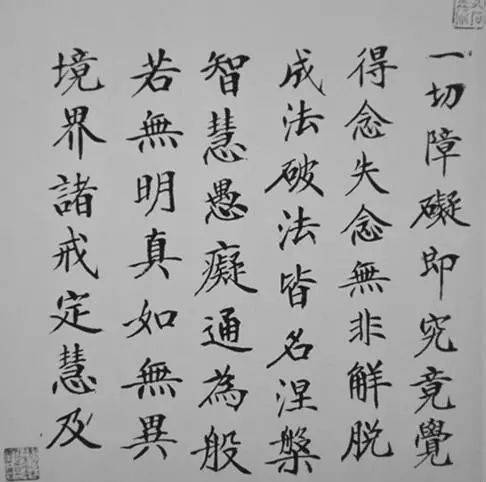 一切障礙即究竟覺
得念失念無非解脫
成法破法皆名涅槃
智慧愚癡通為般
若無明真如無異
境界諸戒定慧及